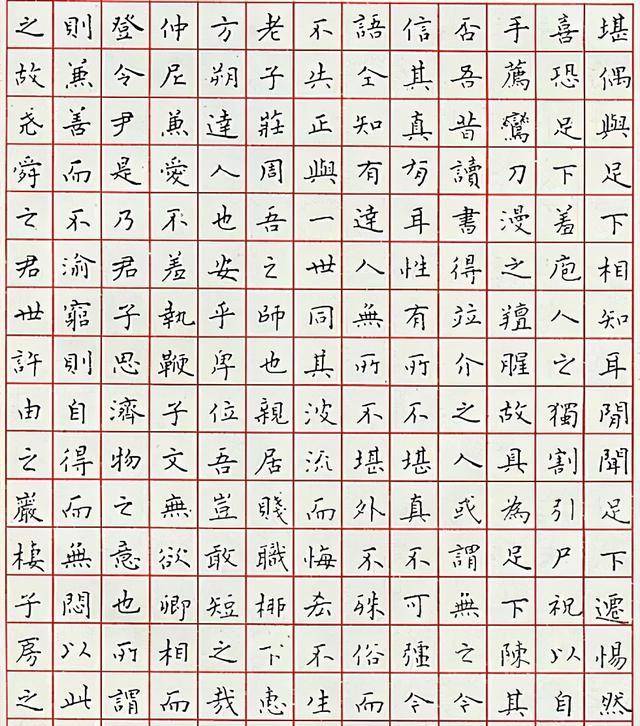 堪偶與足下相知耳閒聞足下遷惕然
喜恐足下羞庖人之獨割引尸祝以自
手薦鸞刀漫之羶腥故具為足下陳其
否吾昔讀書得竝介之人或謂無之今
信其真有耳性有所不堪真不可彊今
語全知有達人無所不堪外不殊俗而
不共正與一世同其波流而悔吝不生
老子莊周吾之師也親居賤職栁下惠
方朔達人也安乎卑位吾豈敢短之哉
仲尼兼愛不羞執鞭子文無欲卿相而
登令尹是乃君子思濟物之意也所謂
則兼善而不渝窮則自得而無悶以此
之故堯舜之君世許由之巖棲子房之